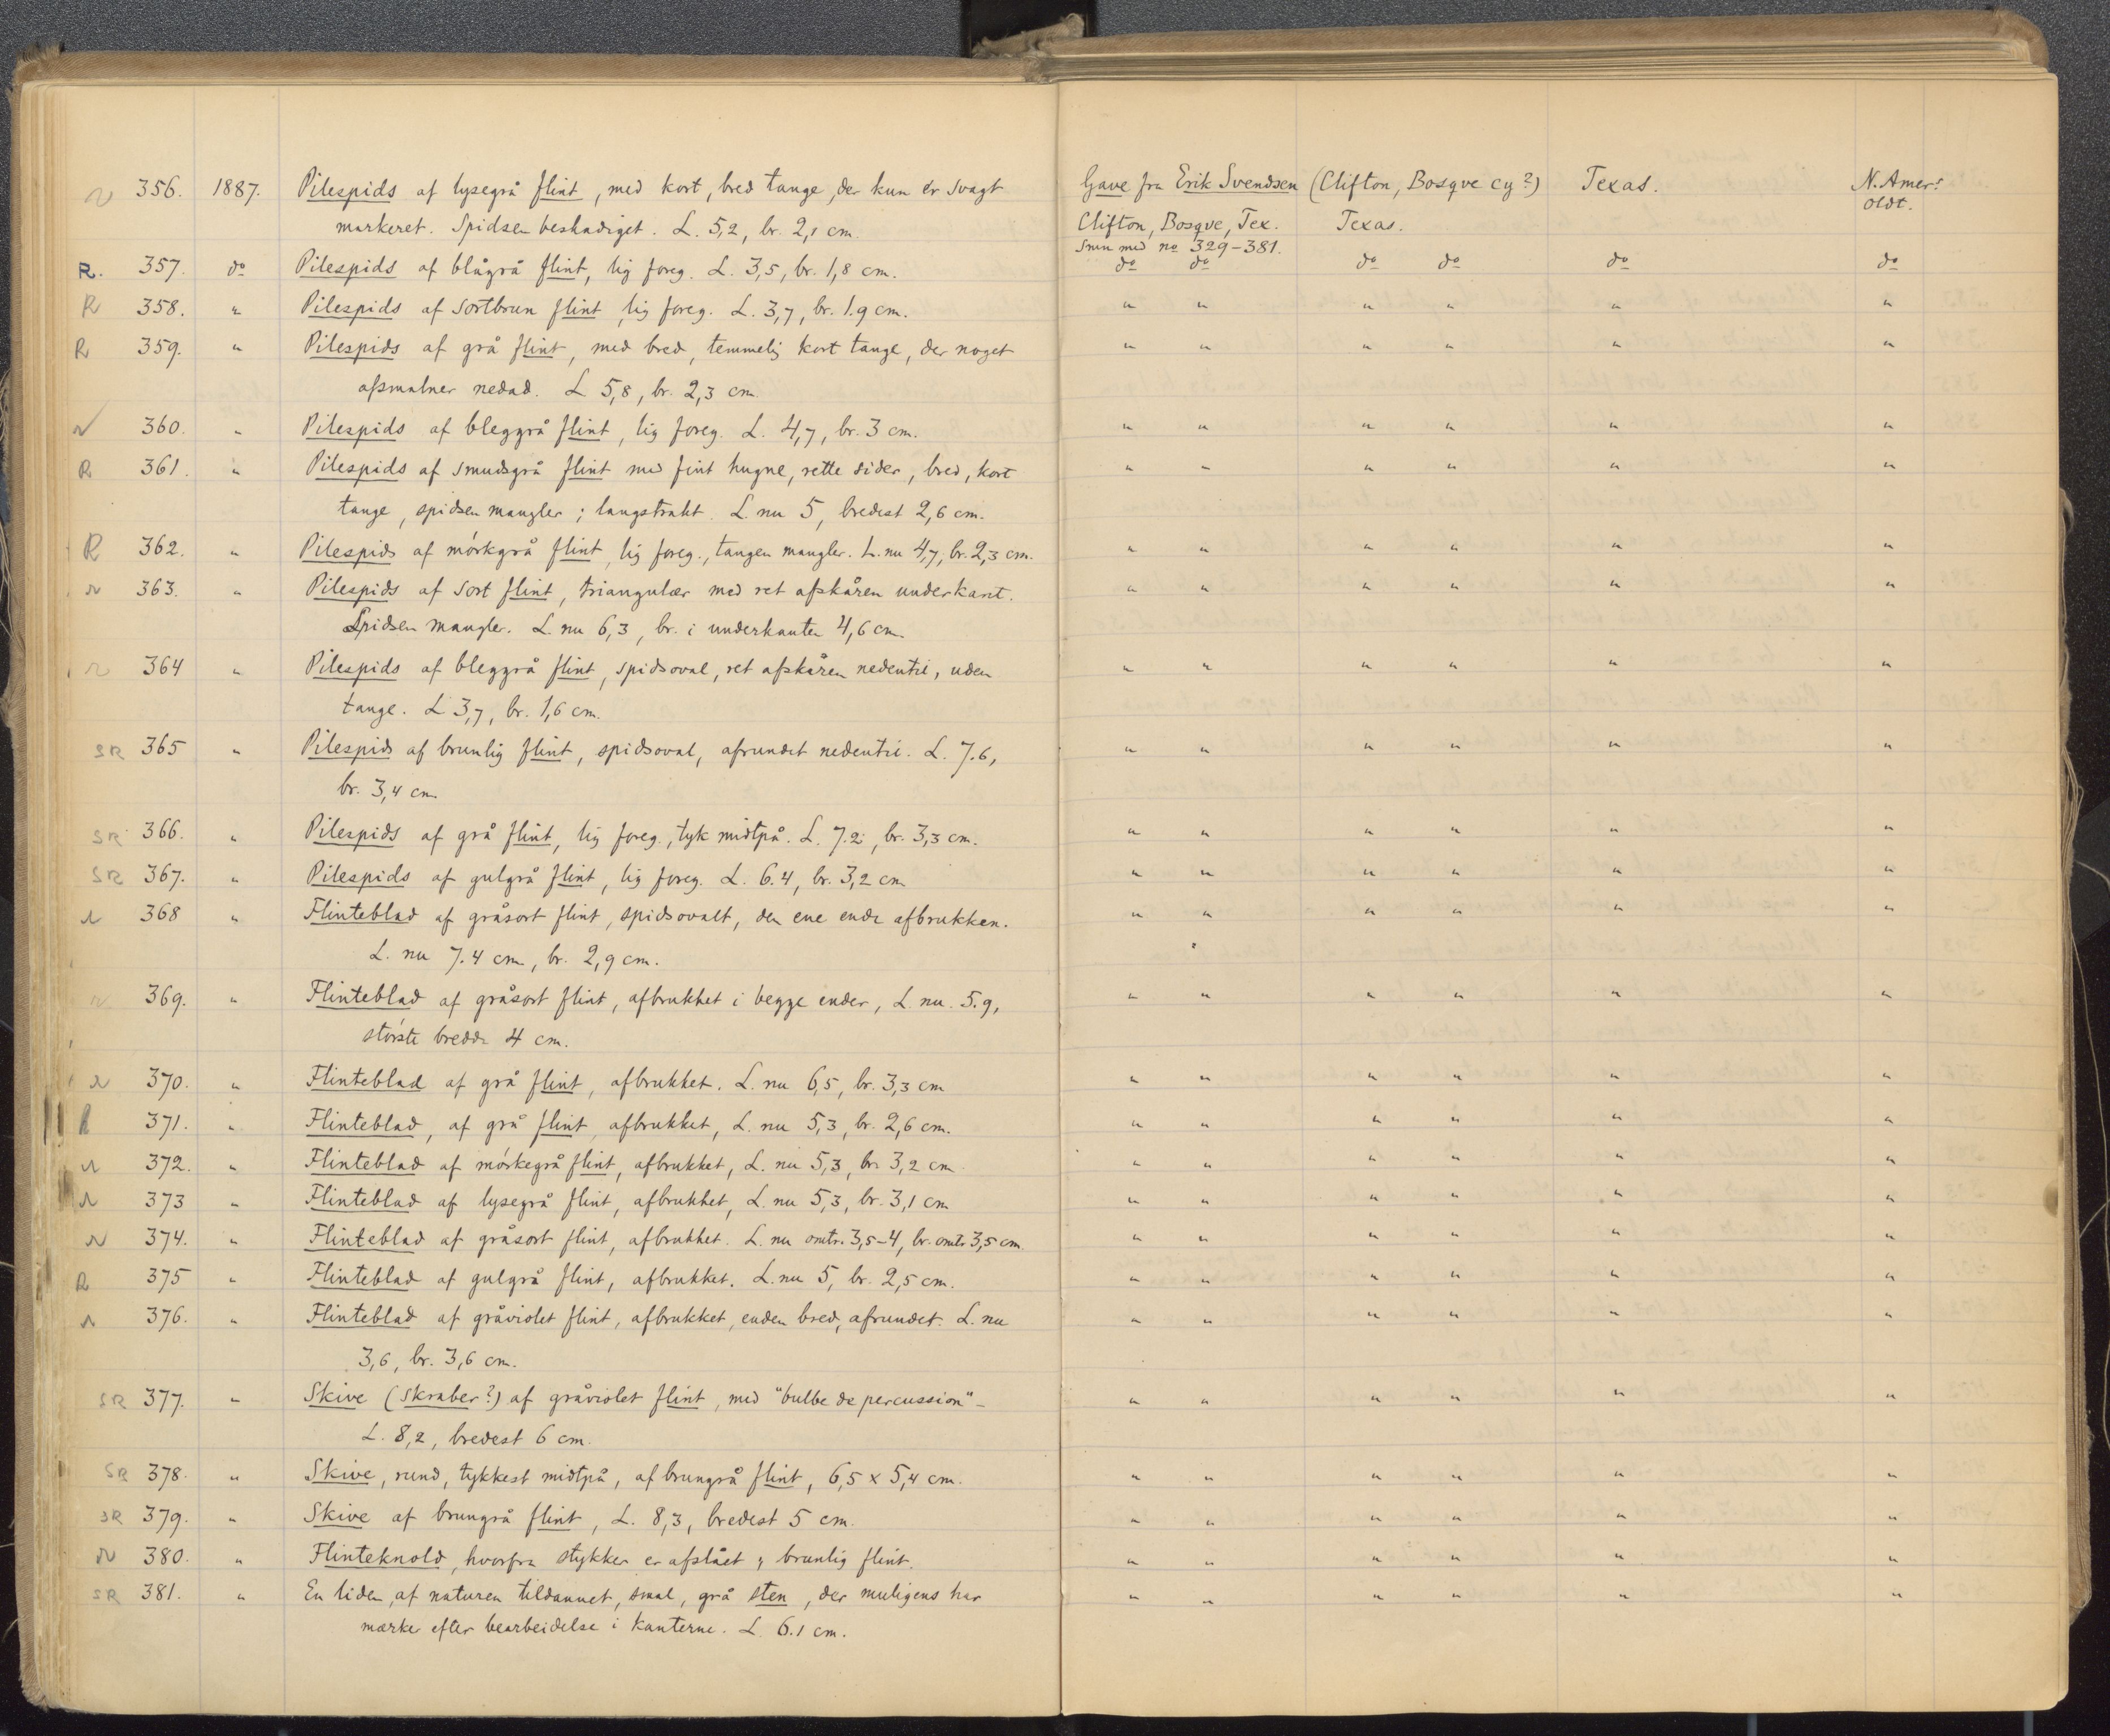 N 356. 1887. Pilespids af lysegrå flint, med kort, bred tange, der kun er svagt Gave fra Erik Svendsen (Clifton, Bosqve cy?) Texas. N. Amer.
markeret. Spidsen beskadiget. L. 5,2, br. 2,1 cm. Clifton, Bosqve, Tex. Texas. oldt.
Smn med no 329-381.
R. 357. do Pilespids af blågrå flint, lig foreg. L. 3,5, br. 1,8 cm. do do do do do do
R 358. " Pilespids af sortbrun flint, lig foreg. L. 3,7, br. 1.9 cm. " " " " " "
R 359. " Pilespids af grå flint, med bred, temmelig kort tange, der noget " " " " " "
afsmalner nedad. L 5,8, br. 2,3 cm.
N 360. " Pilespids af bleggrå flint, lig foreg. L. 4,7, br. 3 cm. " " " " " "
R 361. " Pilespids af smudsgrå flint med fint hugne, rette sider, bred, kort " " " " " "
tange, spidsen mangler; langstrakt. L. nu 5, bredest 2,6 cm.
R 362. " Pilespids af mörkgrå flint, lig foreg., tangen mangler. L. nu 4,7, br. 2,3 cm. " " " " " "
N 363. " Pilespids af sort flint, triangulær med ret afskåren underkant. " " " " " "
Spidsen mangler. L. nu 6,3, br. i underkanten 4,6 cm.
N 364 " Pilespids af bleggrå flint, spidsoval, ret afskåren nedentil, uden " " " " " "
tange. L 3,7, br. 1,6 cm.
SR 365 " Pilespids af brunlig flint, spidsoval, afrundet nedentil. L. 7.6, " " " " " "
br. 3,4 cm
SR 366. " Pilespids af grå flint, lig foreg., tyk midtpå. L. 7.2, br. 3,3 cm. " " " " " "
SR 367. " Pilespids af gulgrå flint, lig foreg. L. 6.4, br. 3,2 cm " " " " " "
N 368 " Flinteblad af gråsort flint, spidsovalt, den ene ende afbrukken. " " " " " "
L. nu 7.4 cm, br. 2,9 cm.
N 369. " Flinteblad af gråsort flint, afbrukket i begge ender, L. nu. 5.9, " " " " " "
störste bredde 4 cm.
N 370. " Flinteblad af grå flint, afbrukket. L. nu 6,5, br. 3,3 cm " " " " " "
R 371. " Flinteblad, af grå flint, afbrukket, L. nu 5,3, br. 2,6 cm. " " " " " "
N 372. " Flinteblad af mörkegrå flint, afbrukket, L. nu 5,3, br. 3,2 cm " " " " " "
N 373 " Flinteblad af lysegrå flint, afbrukket, L. nu 5,3, br. 3,1 cm " " " " " "
N 374. " Flinteblad af gråsort flint, afbrukket. L. nu omtr. 3,5-4, br. omtr 3,5 cm. " " " " " "
R 375 " Flinteblad af gulgrå flint, afbrukket. L. nu 5, br. 2,5 cm. " " " " " "
N 376. " Flinteblad af gråviolet flint, afbrukket, enden bred, afrundet. L. nu " " " " " "
3,6, br. 3,6 cm.
SR 377. " Skive (skraber?) af gråviolet flint, med "bulbe de percussion" - " " " " " "
L. 8,2, bredest 6 cm.
SR 378. " Skive, rund, tykkest midtpå, af brungrå flint, 6,5 x 5,4 cm. " " " " " "
SR 379. " Skive af brungrå flint, L. 8,3, bredest 5 cm. " " " " " "
N 380. " Flinteknold, hvorfra stykker er afslået; brunlig flint. " " " " " "
SR 381. " En liden, af naturen tildannet, smal, grå sten, der muligens har " " " " " "
mærker efter bearbeidelse i kanterne. L. 6.1 cm.